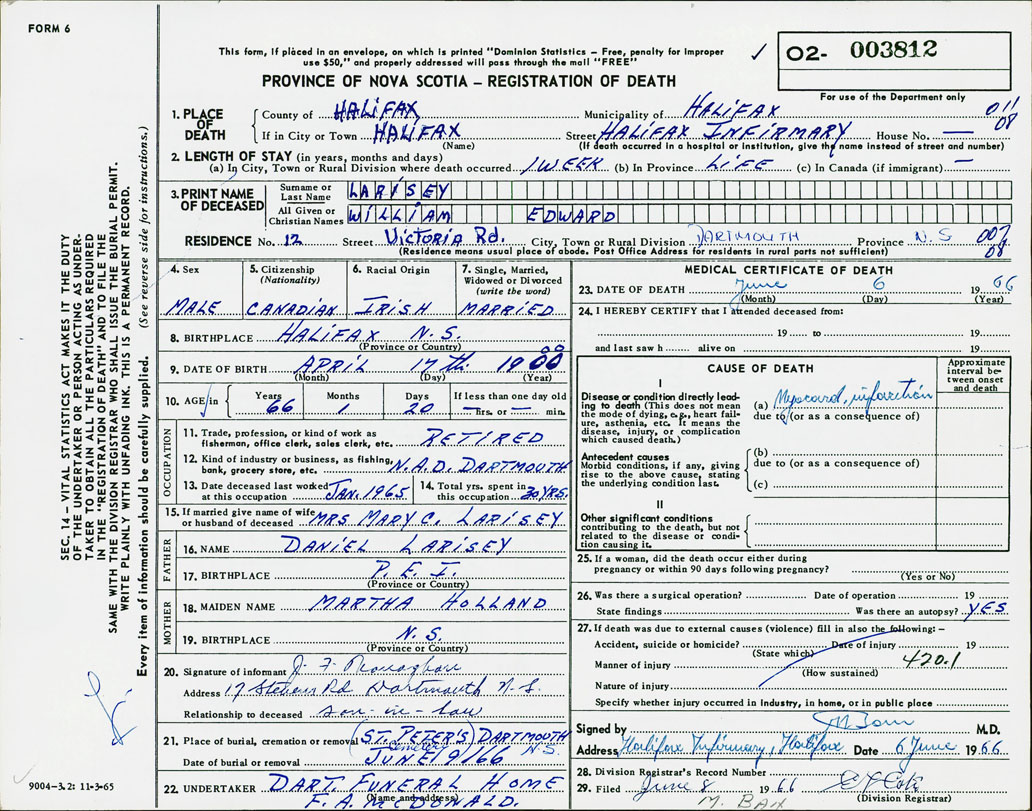 FORM 6
This form, if placed in an envelope, on which is printed "Dominion Statistics – Free, penalty for improper
use $50," and properly addressed will pass through the mail "FREE"
✓ O2- 003812
PROVINCE OF NOVA SCOTIA – REGISTRATION OF DEATH
For use of the Department only
1. PLACE OF DEATH
County of HALIFAX Municipality of HALIFAX 011
If in City or Town HALIFAX Street HALIFAX INFIRMARY House No. — 08
(Name) (If death occurred in a hospital or institution, give the name instead of street and number)
2. LENGTH OF STAY (in years, months and days)
(a) In City, Town or Rural Division where death occurred 1 WEEK (b) In Province LIFE (c) In Canada (if immigrant) —
3. PRINT NAME OF DECEASED
Surname or Last Name LARISEY
All Given or Christian Names WILLIAM EDWARD
RESIDENCE No. 12 Street Victoria Rd. City, Town or Rural Division DARTMOUTH Province N.S 007
(Residence means usual place of abode. Post Office Address for residents in rural parts not sufficient) 08
SEC. 14 – VITAL STATISTICS ACT MAKES IT THE DUTY
OF THE UNDERTAKER OR PERSON ACTING AS UNDER-
TAKER TO OBTAIN ALL THE PARTICULARS REQUIRED
IN THE "REGISTRATION OF DEATH" AND TO FILE THE
SAME WITH THE DIVISION REGISTRAR WHO SHALL ISSUE THE BURIAL PERMIT.
WRITE PLAINLY WITH UNFADING INK. THIS IS A PERMANENT RECORD.
Every item of information should be carefully supplied. (See reverse side for instructions.)
4. Sex MALE
5. Citizenship (Nationality) CANADIAN
6. Racial Origin IRISH
7. Single, Married, Widowed or Divorced (write the word) MARRIED
8. BIRTHPLACE HALIFAX N.S.
(Province or Country)
9. DATE OF BIRTH APRIL 17th 1900
(Month) (Day) (Year)
10. AGE in Years 66 Months 1 Days 20 If less than one day old — hrs. or — min.
OCCUPATION
11. Trade, profession, or kind of work as
fisherman, office clerk, sales clerk, etc. RETIRED
12. Kind of industry or business, as fishing,
bank, grocery store, etc. N.A.D. DARTMOUTH
13. Date deceased last worked at this occupation JAN. 1965
14. Total yrs. spent in this occupation 20 YRS.
15. If married give name of wife
or husband of deceased MRS MARY C. LARISEY
FATHER
16. NAME DANIEL LARISEY
17. BIRTHPLACE P.E.I.
(Province or Country)
MOTHER
18. MAIDEN NAME MARTHA HOLLAND
19. BIRTHPLACE N.S.
(Province or Country)
20. Signature of informant J. F. Monaghan
Address 17 Stevens Rd Dartmouth N.S.
Relationship to deceased son-in-law
21. Place of burial, cremation or removal (ST. PETER'S) DARTMOUTH
Cemetery N.S
Date of burial or removal JUNE 9/66
22. UNDERTAKER DART. FUNERAL HOME
(Name and address)
F. A. McDONALD.
9004-3.2: 11-3-65
MEDICAL CERTIFICATE OF DEATH
23. DATE OF DEATH June 6 1966
(Month) (Day) (Year)
24. I HEREBY CERTIFY that I attended deceased from:
19 to 19
and last saw h alive on 19
CAUSE OF DEATH
Approximate interval between onset and death
I
Disease or condition directly lead-
ing to death (This does not mean
the mode of dying, e.g., heart fail-
ure, asthenia, etc. It means the
disease, injury, or complication
which caused death.)
(a) Myocard. infarction
due to (or as a consequence of)
Antecedent causes
Morbid conditions, if any, giving
rise to the above cause, stating
the underlying condition last.
(b)
due to (or as a consequence of)
(c)
II
Other significant conditions
contributing to the death, but not
related to the disease or condi-
tion causing it.
25. If a woman, did the death occur either during
pregnancy or within 90 days following pregnancy?
(Yes or No)
26. Was there a surgical operation? Date of operation 19
State findings Was there an autopsy? YES
27. If death was due to external causes (violence) fill in also the following: –
Accident, suicide or homicide? Date of injury 19
(State which)
Manner of injury 420.1
(How sustained)
Nature of injury
Specify whether injury occurred in industry, in home, or in public place
Signed by M.D.
Address Halifax Infirmary, Halifax Date 6 June 1966
28. Division Registrar's Record Number
29. Filed June 8 1966
(Division Registrar)